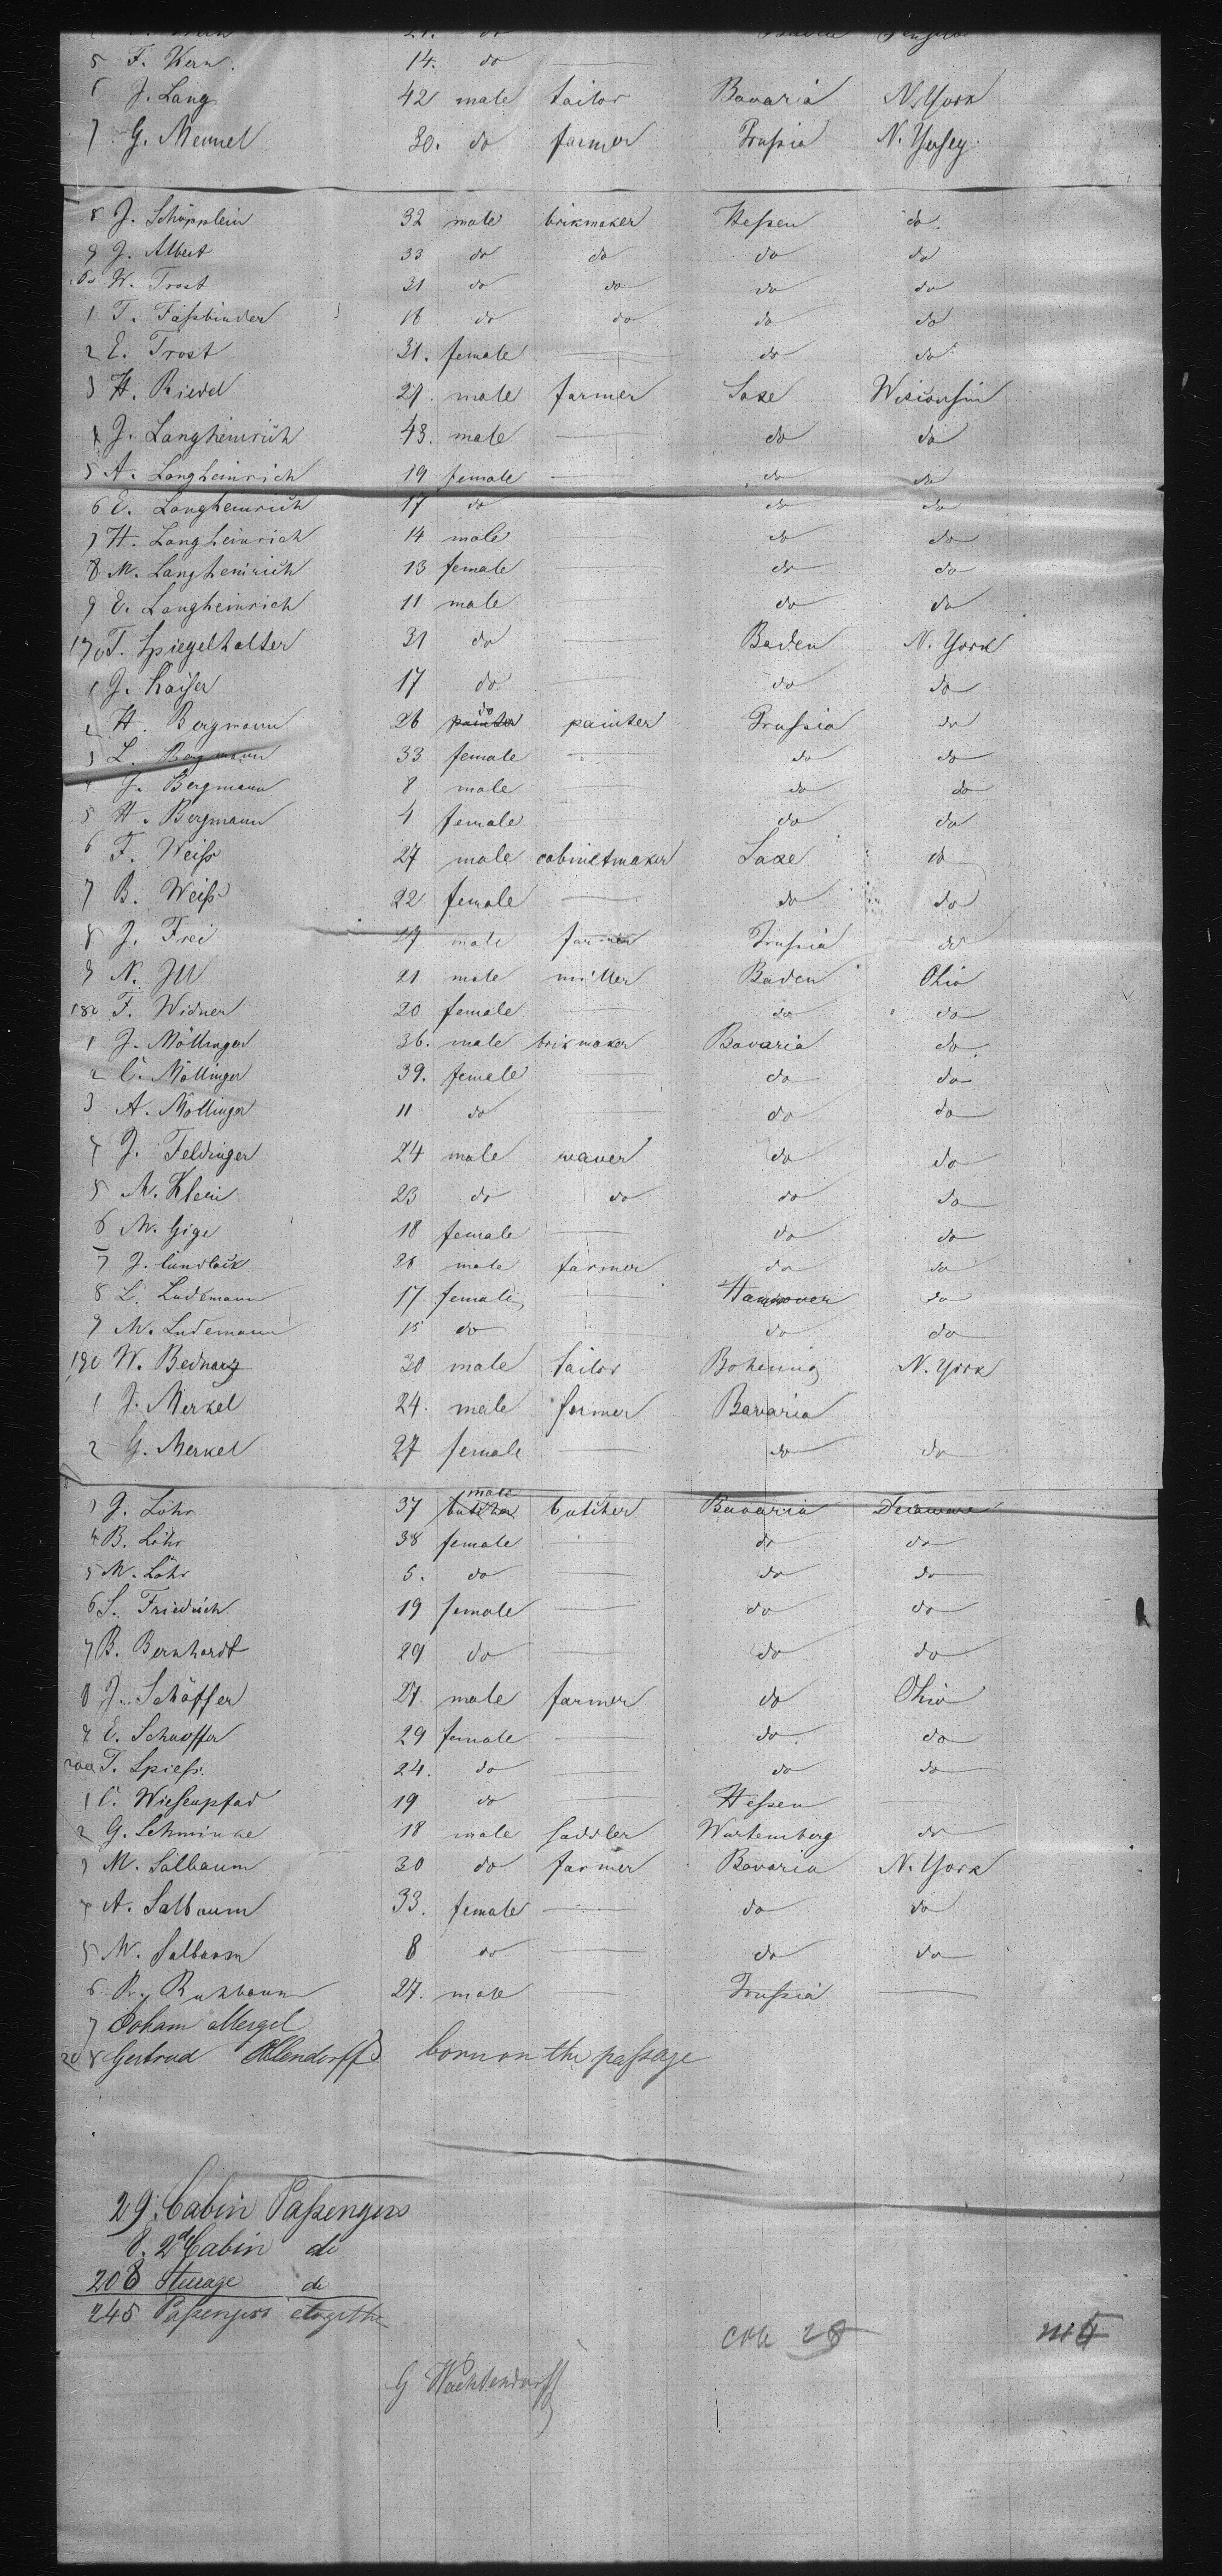 5 F. Kern. 14. do
6 J. Lang 42 male tailor Bavaria N. York
7 G. Mennel 30. do farmer Prussia N. Yersey.
8 J. Schöpplein 32 male brikmaker Hessen do.
9 J. Albert 33 do do do do
60 W. Trost 31 do do do do
1 T. Fassbinder 16 do do do do
2 E. Trost 31. female do do
3 H. Riedel 29. male farmer Saxe Wisconsin
4 J. Langheinrich 43. male do do
5 A. Langheinrich 19 female do do
6 E. Langheinrich 17 do do do
7 H. Langheinrich 14 male do do
8 M. Langheinrich 13 female do do
9 E. Langheinrich 11 male do do
170 T. Spiegelhalter 31 do Baden N. York
1 J. Kaiser 17 do do do
2 H. Bergmann 26 painter do painter Prussia do
3 L. Bergmann 33 female do do
4 J. Bergmann 8 male do do
5 H. Bergmann 4 female do do
6 F. Weiss 27 male cabinetmaker Saxe do
7 B. Weiss 22 female do do
8 J. Frei 27 male farmer Prussia do
9 N. Ill 21 male miller Baden Ohio
180 F. Widner 20 female do do
1 J. Möllinger 36. male brikmaker Bavaria do
2 C. Möllinger 39. female do do
3 A. Möllinger 11 do do do
4 J. Feldinger 24 male waver do do
5 M. Klein 23 do do do do
6 M. Gige 18 female do do
7 J. 26 male farmer do do
8 L. Ludemann 17 female Hannover do
9 M. Ludemann 15 do do do
190 W. Bednarz 30 male tailor N. York
1 J. Merkel 24. male farmer Bavaria
2 G. Merkel 27 female do do
3 J. Löhr 37 butcher male butcher Bavaria Delaware
4 B. Löhr 38 female do do
5 M. Löhr 5. do do do
6 S. Friedrich 19 female do do
7 B. Bernhardt 29 do do do
8 J. Schäffer 27 male farmer do Ohio
9 E. Schaeffer 29 female do do
200 T. Spiess. 24. do do do
1 C. Wiesenpfad 19 do Hessen
2 G. Schminke 18 male saddler Wurtemberg do
3 M. Salbaum 30 do farmer Bavaria N. York
4 A. Salbaum 33. female do do
5 M. Salbaum 8 do do do
6 27. male Prussia
7 Joham Mergel
208 Gertrud Ollendorff born on the passage
29. Cabin Passengers
8. 2d Cabin do
208 Steerage do
245 Passengers altogether
G Wachtendorff